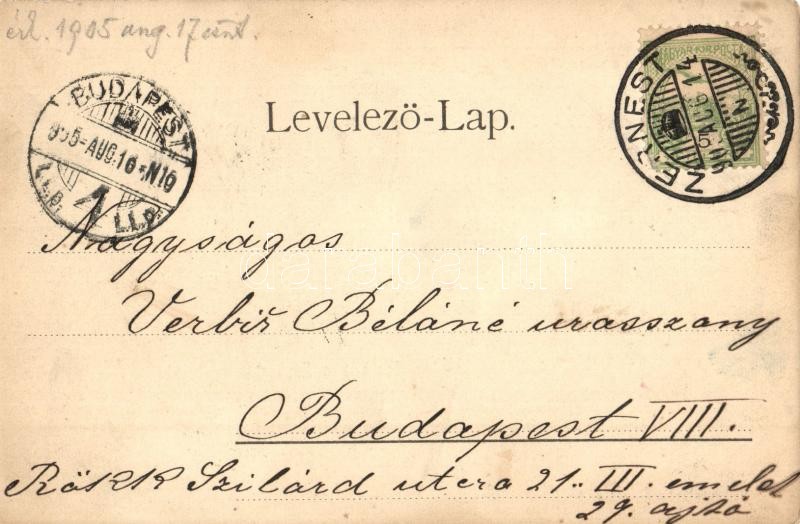 érk. 1905 aug. 17 csüt.
MAGYAR KIR. POSTA
ZERNEST
BUDAPEST
905-AUG.16-N10
1
Levelező-Lap.
Nagyságos
darabanth
Verbiř Béláné urasszony
Budapest VIII.
Rökk Szilárd utcza 21. III. emelet
29. ajtó